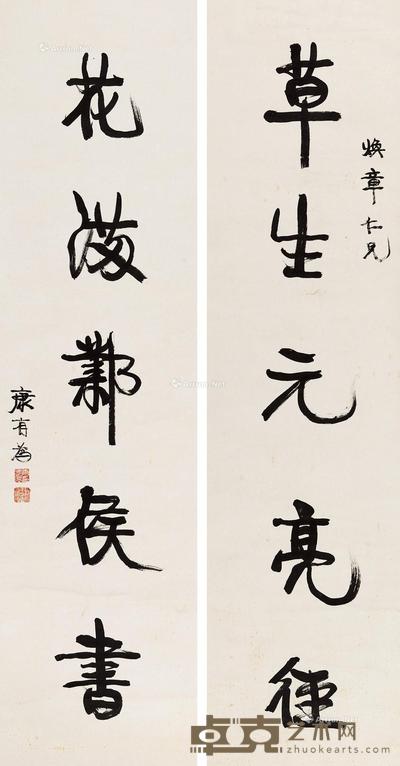 草生元亮徑
煥章仁兄
花滿鄴侯書
康有為
卓克艺术网
zhuokearts.com